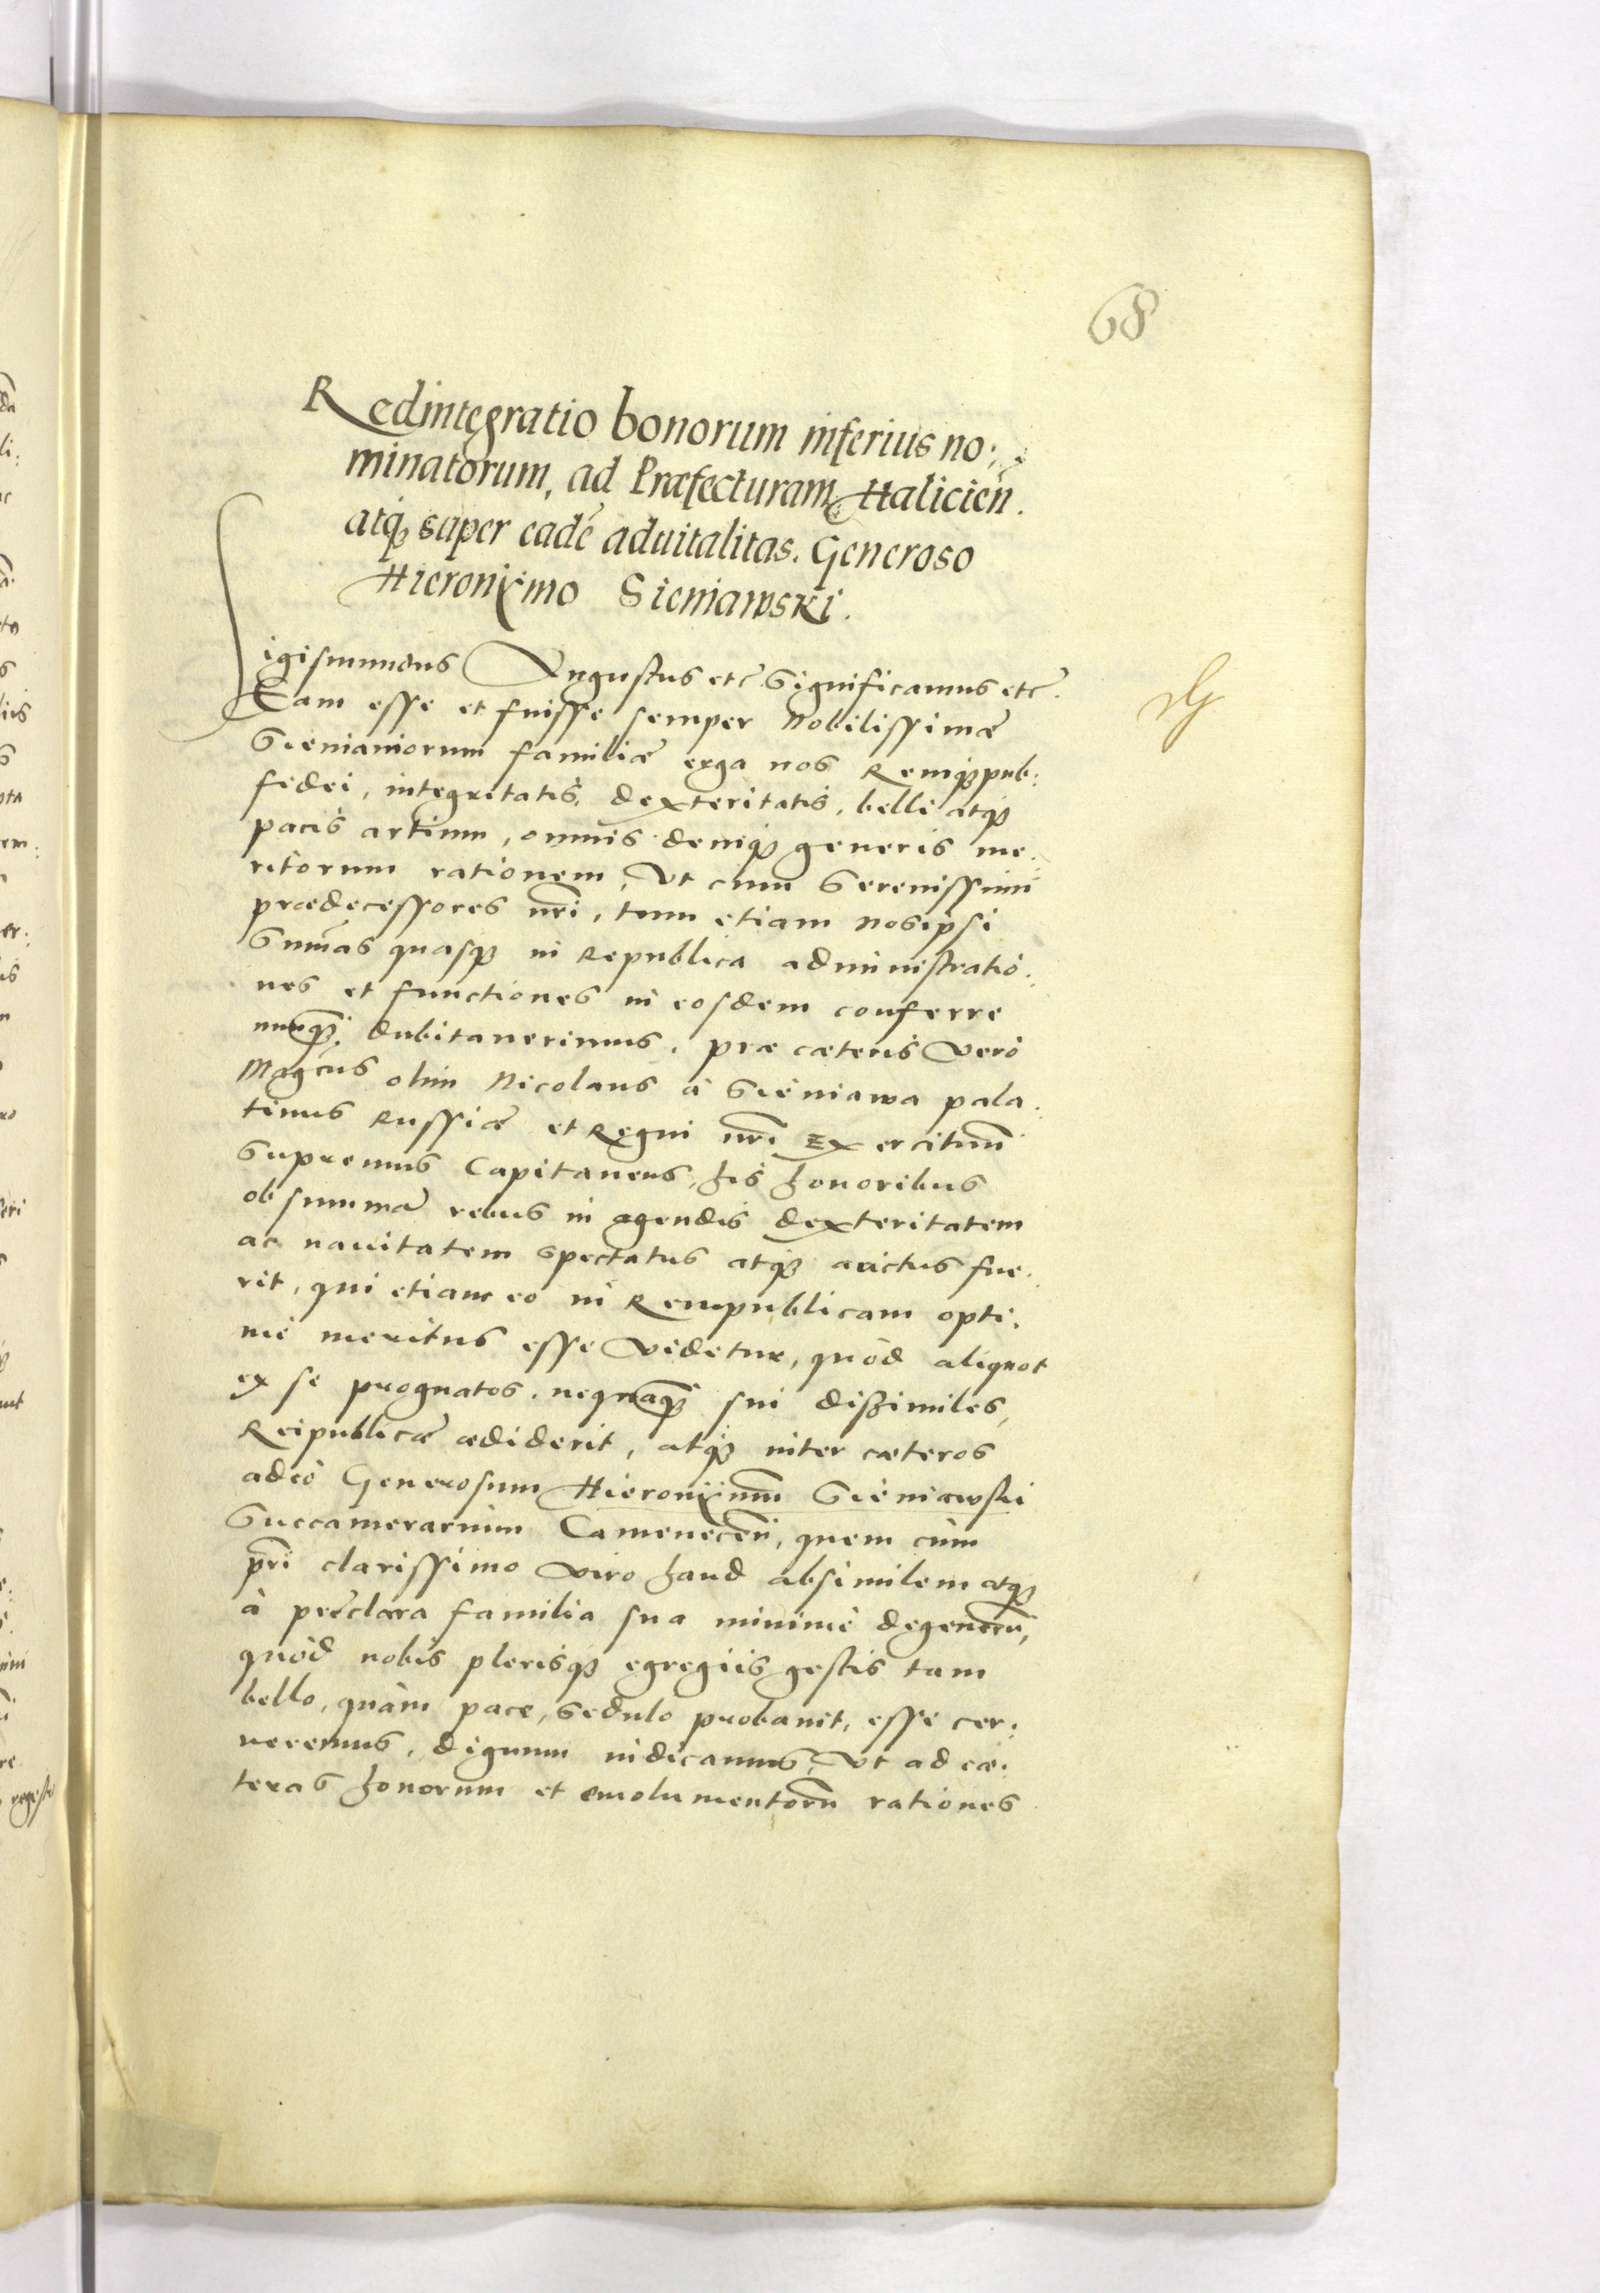 68
Redintegratio bonorum inferius no:
minatorum, ad Præfecturam Halicień.
atq́ꝫ super eadē aduitalitas. Generoso
Hieronÿmo Sieniawski.
Sigismundus Augustus etc̄ Significamus etc̄.
Eam esse et fuisse semper Nobilissimæ
Sieniauiorum familiæ erga nos Remq́ꝫpub:
fidei, integritatis, dexteritatis, belli atq́ꝫ
pacis artium, omnis deniq́ꝫ generis me:
ritorum rationem, Vt cum Serenissimi
prædecessores nr̄i, tum etiam nosipsi
Sum̄as quasq́ꝫ in Republica administratio:
nes et functiones in eosdem conferre
nunq̃ꝫ dubitauerimus, præ cæteris Vero
Magcus olim Nicolaus à Sieniawa pala:
tinus Russiæ et Regni nr̄i Exercituum̄
Supremus Capitaneus, his honoribus
ob summā rebus in agendis dexteritatem
ac nauitatem spectatus atq́ꝫ auctus fue:
rit, qui etiam eo in Rempublicam opti:
mè meritus esse Videtur, quòd aliquot
ex se prognatos, nequaq̃ꝫ sui dißimiles,
Reipublicæ ædiderit, atq́ꝫ inter cæteros
adeò Generosum Hieronÿmum Sieniawski
Succamerarium Camenecen̄, quem cùm
pr̄i clarissimo Viro haud absimilem atq́ꝫ
à præclara familia sua minimè degenerem̄,
quòd nobis plerisq́ꝫ egregiis gestis tam
bello, quàm pace, Sedulo probauit, esse cer:
neremus, dignum iudicauimus, Vt ad cæ:
teras honorum et emolumentorū rationes